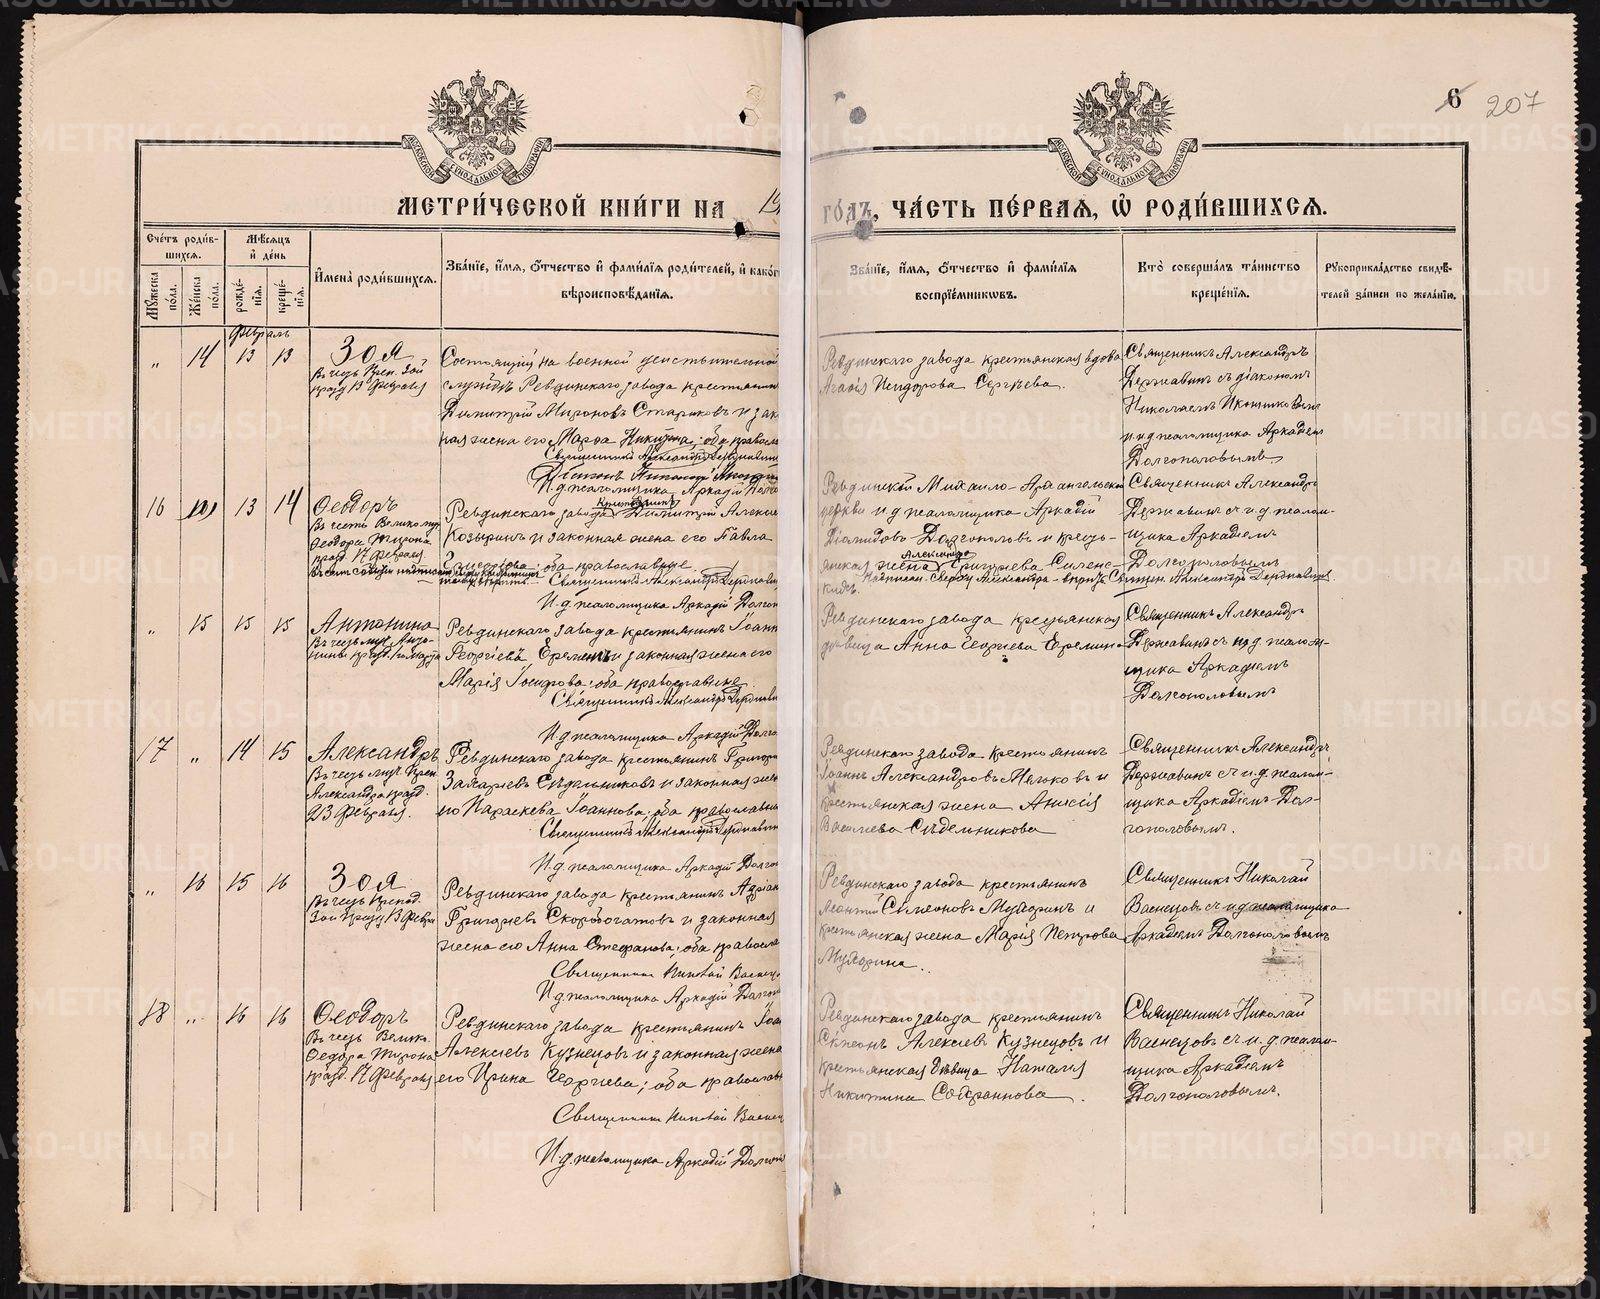 6 207
МЕТРИ́ЧЕСКОЙ КНИ́ГИ НА 19
ГО́ДЪ, ЧА́СТЬ ПЕ́РВАЯ, Ѡ РОДИ́ВШИХСЯ.
Сче́тъ роди́в-
шихся.
Мѣ́сяцъ
и де́нь
Му́жеска
по́ла.
Же́нска
по́ла.
рожде́-
нія.
креще́-
нія.
Имена̀ роди́вшихся.
Зва́ніе, и́мя, о́тчество и фами́лія роди́телей, и како́г
вѣроисповѣ́данія.
Зва́ніе, и́мя, о́тчество и фами́лія
воспріе́мниковъ.
Кто̀ соверша́лъ та́инство
креще́нія.
Рукоприкла́дство свидѣ́-
телей за́писи по жела́нію.
Февраль
„ 14 13 13
Зоя
Въ честь Преп. Зои
празд. 13 Февраля
Состоящій на военной действительной
службѣ Ревдинскаго завода крестьянин
Димитрій Мироновъ Стариковъ и зак
ная жена его Марѳа Никитина; оба правосл
Священникъ Александръ Державинъ
Діаконъ Николай
И.д. псаломщика Аркадій
Ревдинскаго завода крестьянская вдова
Агаѳія Исидорова Сергѣева.
Священникъ Александръ
Державинъ съ діакономъ
Николаемъ Иконниковым
и и.д. псаломщика Аркадіем
Долгополовымъ.
16 13 14
Ѳеодоръ
Въ честь Великомуч.
Ѳеодора Тирона
празд. 17 Февраля.
Ревдинскаго завода крестьянинъ Димитрій Алексѣе
Козыринъ и законная жена его Павла
оба православные.
Священникъ Александръ Державинъ
И.д. псаломщика Аркадій Долгоп
Ревдинской Михаило-Архангельской
церкви и.д. псаломщика Аркадій
Діомидовъ Долгополовъ и кресть-
янская жена Александра Григорьева
Священникъ Александръ
Державинъ съ и.д. псалом-
щика Аркадіемъ
Долгополовымъ
„ 15 15 15
Антонина
Въ честь муч. Анто-
нины празд. 1 Марта
Ревдинскаго завода крестьянинъ Іоанн
Георгіевъ Еремин и законная жена его
Марія Іосифова; оба православные.
Священникъ Александръ Державин
И.д. псаломщика Аркадій Долго
Ревдинскаго завода крестьянская
дѣвица Анна Георгіева Еремина
Священникъ Александръ
Державинъ съ и.д. псалом-
щика Аркадіемъ
Долгополовымъ
17 „ 14 15
Александръ
Въ честь муч.
Александра празд.
23 Февраля.
Ревдинскаго завода крестьянинъ Григор
Захаріевъ Сѣдельниковъ и законная жен
его Параскева Іоаннова; оба православны
Священникъ Александръ Державин
И.д. псаломщика Аркадій Долго
Ревдинскаго завода крестьянинъ
Іоаннъ Александровъ Мялковъ и
крестьянская жена Анисія
Васильева Сѣдельникова
Священникъ Александръ
Державинъ съ и.д. псалом-
щика Аркадіемъ Дол-
гополовымъ.
„ 16 15 16
Зоя
Въ честь Препод.
Зои празд. 13 Февра
Ревдинскаго завода крестьянинъ Адріан
Григорьевъ Скоробогатовъ и законная
жена его Анна Стефанова; оба правосла
Священникъ Николай Васнецо
И.д. псаломщика Аркадій Долго
Ревдинскаго завода крестьянинъ
Леонтій Симеоновъ и
крестьянская жена Марія Петрова
Священникъ Николай
Васнецовъ съ и.д. псаломщика
Аркадіемъ Долгополовымъ
18 „ 16 16
Ѳеодоръ
Въ честь Велико.
Ѳедора Тирона
празд. 17 Февраля
Ревдинскаго завода крестьянинъ Іоа
Алексѣевъ Кузнецовъ и законная жена
его Ирина Георгіева; оба православн
Священникъ Николай Васнец
И.д. псаломщика Аркадій Долгоп
Ревдинскаго завода крестьянинъ
Симеонъ Алексѣевъ Кузнецовъ и
крестьянская дѣвица Наталія
Никитина
Священникъ Николай
Васнецовъ съ и.д. псалом-
щика Аркадіемъ
Долгополовымъ.